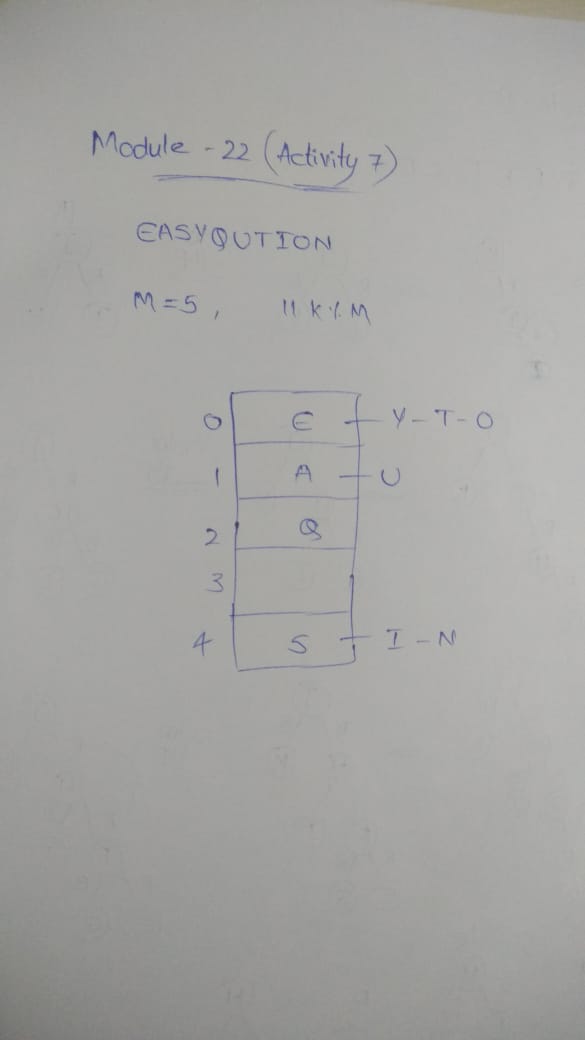 Module - 22 (Activity 7)
EASYQUTION
M=5, 11 K % M
0 E Y-T-O
1 A U
2 Q
3
4 S I-N